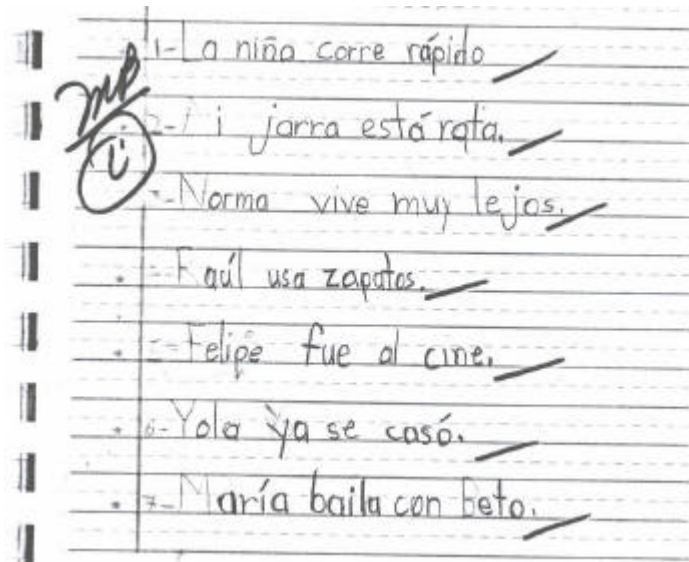 1- La niña corre rápido
MB
2- Mi jarra está rota.
3- Norma vive muy lejos.
- Raúl usa zapatos.
- Felipe fue al cine.
6- Yola ya se casó.
7- María baila con Beto.